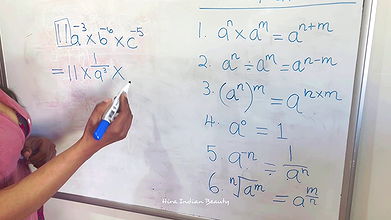 11a⁻³ x b⁻⁶ x c⁻⁵
= 11 x 1/a³ x
1. aⁿ x aᵐ = aⁿ⁺ᵐ
2. aⁿ ÷ aᵐ = aⁿ⁻ᵐ
3. (aⁿ)ᵐ = aⁿˣᵐ
4. a⁰ = 1
5. a⁻ⁿ = 1/aⁿ
6. ⁿ√aᵐ = a^(m/n)
Hira Indian Beauty